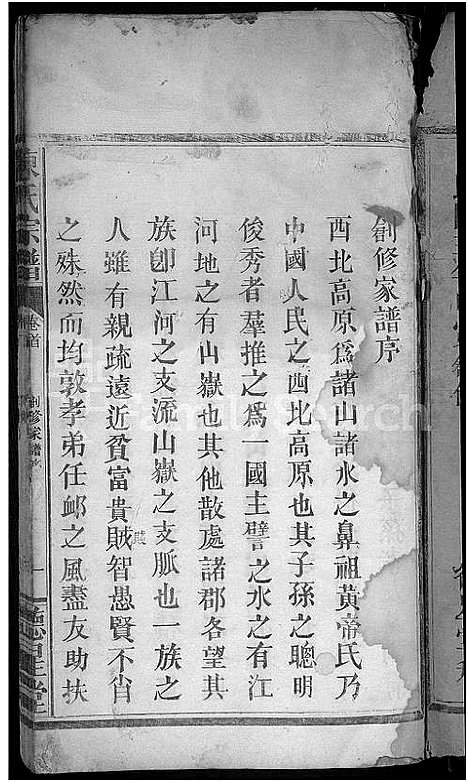 創修家譜序
西北高原爲諸山諸水之鼻祖黄帝氏乃
中國人民之西北高原也其子孫之聰明
俊秀者羣推之爲一國主譬之水之有江
河地之有山嶽也其他散處諸郡各望其
族卽江河之支流山嶽之支脈也一族之
人雖有親疏遠近貧富貴賊智愚賢不肖
之殊然而均敦孝弟任卹之風盡友助扶
陳氏宗譜
卷首
創修家譜序
一
德星堂
FamilySearch